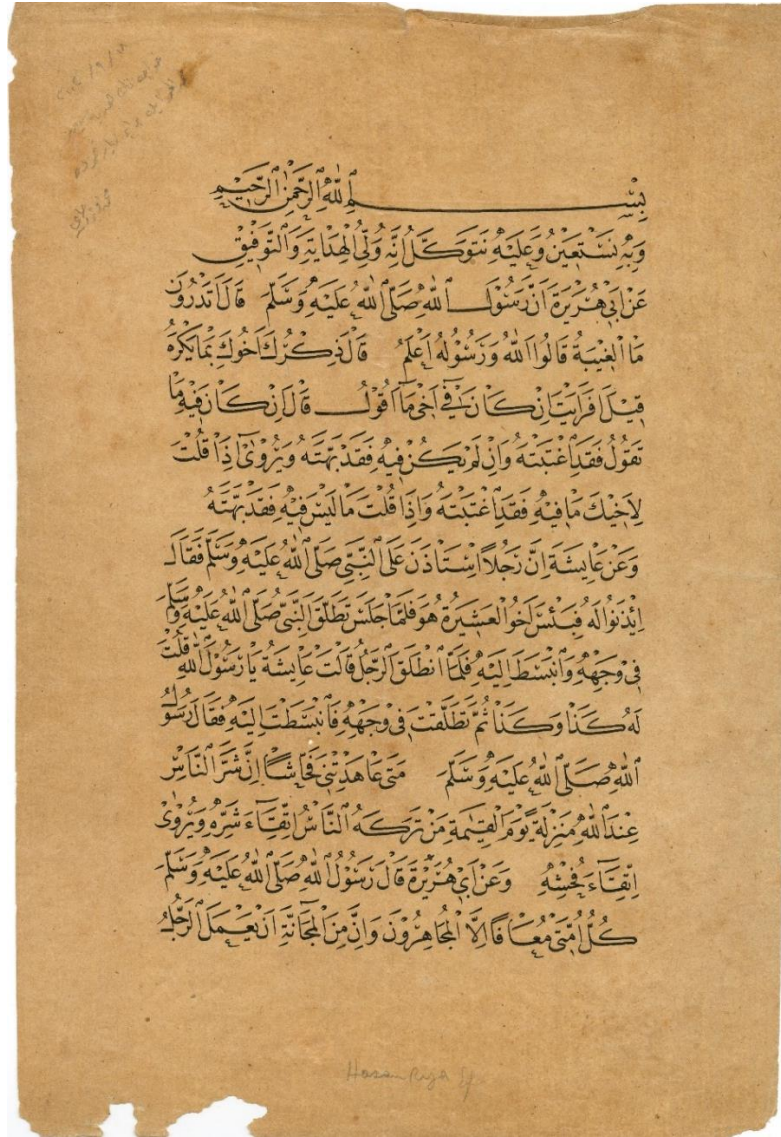 بِسْمِ ٱللّٰهِ ٱلرَّحْمٰنِ ٱلرَّحِيمِ
وَبِهِ نَسْتَعِينُ وَعَلَيْهِ نَتَوَكَّلُ اِنَّهُ وَلِيُّ الْهِدَايَةِ وَالتَّوْفِيقِ
عَنْ اَبِي هُرَيْرَةَ اَنَّ رَسُولَ اللّٰهِ صَلَّى اللّٰهُ عَلَيْهِ وَسَلَّمَ قَالَ اَتَدْرُونَ
مَا الْغِيبَةُ قَالُوا اَللّٰهُ وَرَسُولُهُ اَعْلَمُ قَالَ ذِكْرُكَ اَخُوكَ بِمَا يَكْرَهُ
قِيلَ اَفَرَاَيْتَ اِنْ كَانَ فِي اَخِي مَا اَقُولُ قَالَ اِنْ كَانَ فِيهِ مَا
تَقُولُ فَقَدِ اغْتَبْتَهُ وَاِنْ لَمْ يَكُنْ فِيهِ فَقَدْ بَهَتَّهُ وَيُرْوٰى اِذَا قُلْتَ
لِاَخِيكَ مَا فِيهِ فَقَدِ اغْتَبْتَهُ وَاِذَا قُلْتَ مَا لَيْسَ فِيهِ فَقَدْ بَهَتَّهُ
وَعَنْ عَايِشَةَ اِنَّ رَجُلًا اسْتَاْذَنَ عَلَى النَّبِيِّ صَلَّى اللّٰهُ عَلَيْهِ وَسَلَّمَ فَقَالَ
اِيْذَنُوا لَهُ فَبِئْسَ اَخُو الْعَشِيرَةِ هُوَ فَلَمَّا جَلَسَ تَطَلَّقَ النَّبِيُّ صَلَّى اللّٰهُ عَلَيْهِ وَسَلَّمَ
فِي وَجْهِهِ وَانْبَسَطَ اِلَيْهِ فَلَمَّا انْطَلَقَ الرَّجُلُ قَالَتْ عَايِشَةُ يَا رَسُولَ اللّٰهِ قُلْتَ
لَهُ كَذَا وَكَذَا ثُمَّ تَطَلَّقْتَ فِي وَجْهِهِ فَانْبَسَطْتَ اِلَيْهِ فَقَالَ رَسُولُ
اللّٰهِ صَلَّى اللّٰهُ عَلَيْهِ وَسَلَّمَ مَتٰى عَاهَدْتِنِي فَحَّاشًا اِنَّ شَرَّ النَّاسِ
عِنْدَ اللّٰهِ مَنْزِلَةً يَوْمَ الْقِيٰمَةِ مَنْ تَرَكَهُ النَّاسُ اتِّقَاءَ شَرِّهِ وَيُرْوٰى
اِتِّقَاءَ فُحْشِهِ وَعَنْ اَبِي هُرَيْرَةَ قَالَ رَسُولُ اللّٰهِ صَلَّى اللّٰهُ عَلَيْهِ وَسَلَّمَ
كُلُّ اُمَّتِي مُعَافًا اِلَّا الْمُجَاهِرُونَ وَاِنَّ مِنَ الْمَجَانَةِ اَنْ يَعْمَلَ الرَّجُلُ